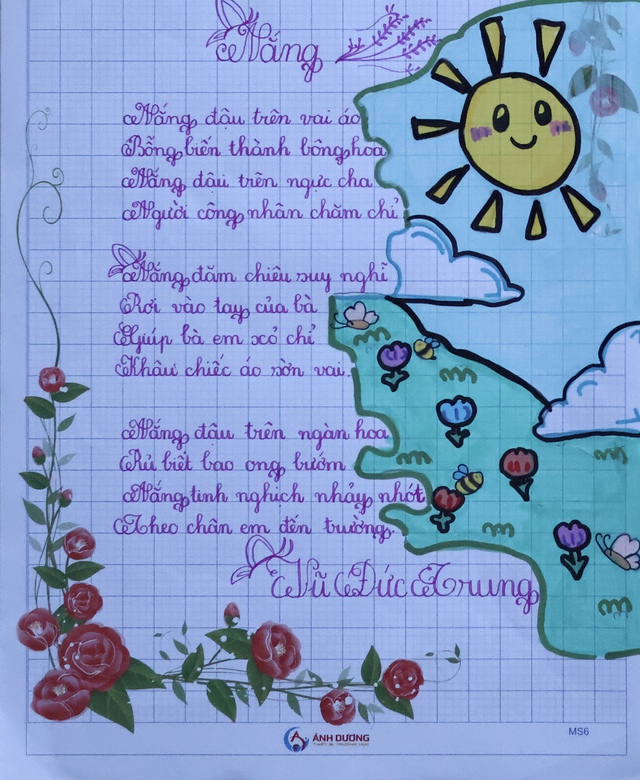 Nắng
Nắng đậu trên vai áo
Bỗng biến thành bông hoa
Nắng đậu trên ngực cha
Người công nhân chăm chỉ
Nắng đăm chiêu suy nghĩ
Rơi vào tay của bà
Giúp bà em xỏ chỉ
Khâu chiếc áo sờn vai.
Nắng đậu trên ngàn hoa
Rủ biết bao ong bướm
Nắng tinh nghịch nhảy nhót
Theo chân em đến trường.
Vũ Đức Trung
ÁNH DƯƠNG
THIẾT BỊ TRƯỜNG HỌC
MS6